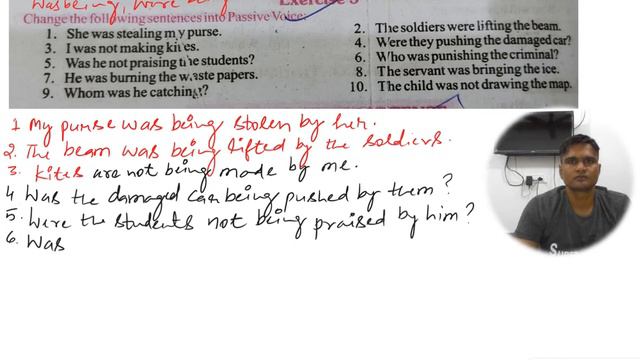 was being, were being
Exercise 3
Change the following sentences into Passive Voice:
1. She was stealing my purse.
2. The soldiers were lifting the beam.
3. I was not making kites.
4. Were they pushing the damaged car?
5. Was he not praising the students?
6. Who was punishing the criminal?
7. He was burning the waste papers.
8. The servant was bringing the ice.
9. Whom was he catching?
10. The child was not drawing the map.
1 My purse was being stolen by her.
2. The beam was being lifted by the soldiers.
3. Kites are not being made by me.
4 Was the damaged car being pushed by them?
5. Were the students not being praised by him?
6. Was